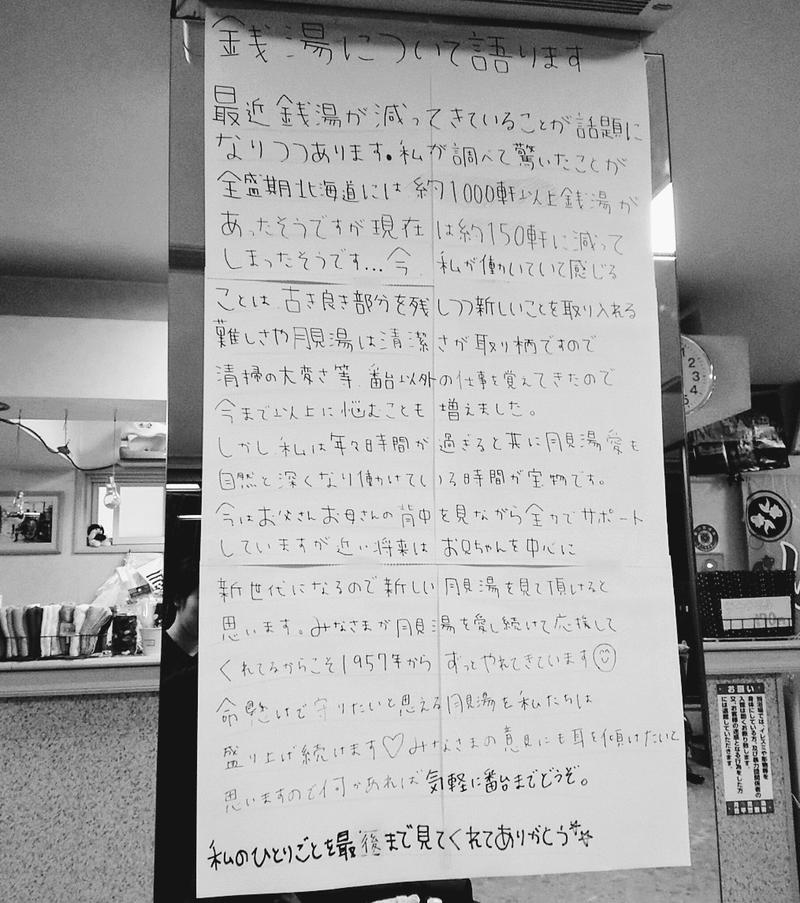 銭湯について語ります
最近銭湯が減ってきていることが話題に
なりつつあります。私が調べて驚いたことが
全盛期北海道には約1000軒以上銭湯が
あったそうですが現在は約150軒に減って
しまったそうです…今、私が働いていて感じる
ことは、古き良き部分を残しつつ新しいことを取り入れる
難しさや月見湯は清潔さが取り柄ですので
清掃の大変さ等、番台以外の仕事を覚えてきたので
今まで以上に悩むことも増えました。
しかし私は年々時間が過ぎると共に月見湯愛も
自然と深くなり働けている時間が宝物です。
今はお父さんお母さんの背中を見ながら全力でサポート
していますが近い将来はお兄ちゃんを中心に
新世代になるので新しい月見湯を見て頂けると
思います。みなさまが月見湯を愛し続けて応援して
くれてるからこそ1957年からずっとやれてきています☺
命懸けで守りたいと思える月見湯を私たちは
盛り上げ続けます♡みなさまの意見にも耳を傾けたいと
思いますので何かあれば気軽に番台までどうぞ。
私のひとりごとを最後まで見てくれてありがとう
1
2
3
4
5
お願い
当浴場では、イレズミや彫物等を
身体にしている方、及び暴力団関係者の
入場は固くお断り致します。
又、お客様の迷惑となる行為をした方
には退場していただきます。